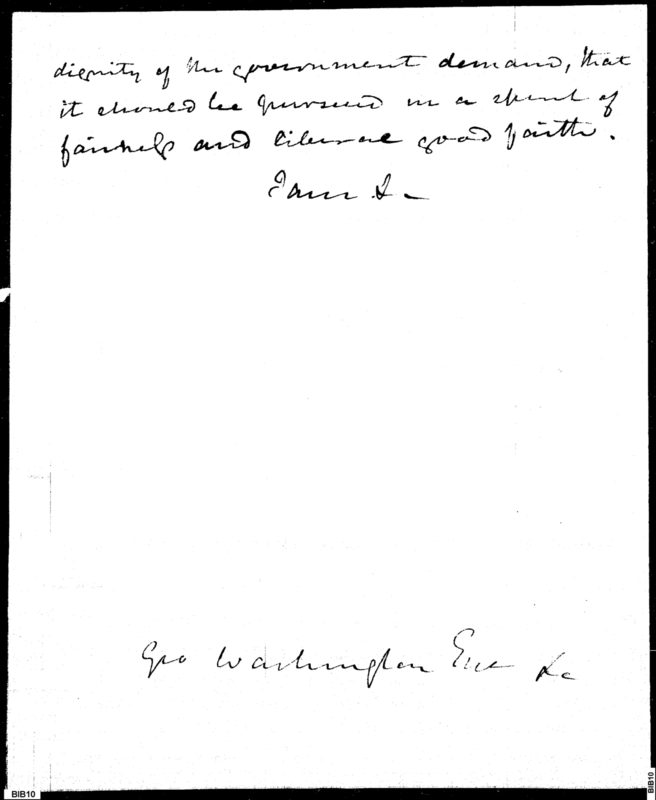 dignity of the government demand, that
it should be pursued in a spirit of
fairness and liberal good faith.
I am &c
Geo Washington Esqr &c
BIB10
BIB10